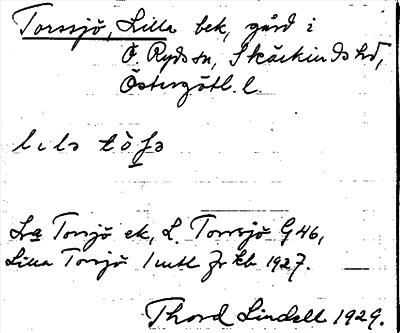 Torssjö, Lilla bek, gård i
Ö. Ryds sn, Skärkinds hd,
Östergötl. l.
lılə
Lra Torsjö ek, L. Torrsjö G 46,
Lilla Torsjö 1 mtl Jr kb 1927.
Thord Lindell 1929.